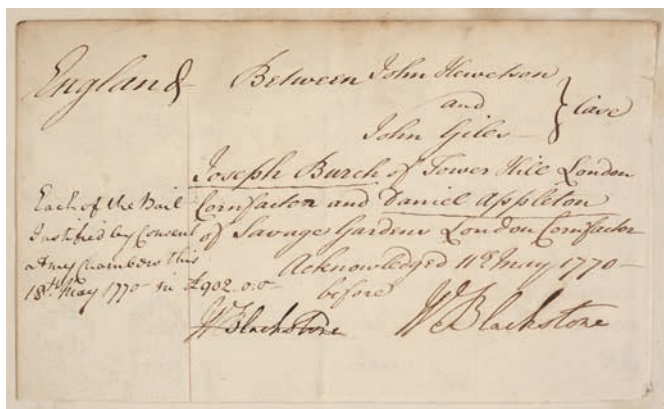 England
Between John Hewetson
and
John Giles
} Case
Joseph Burch of Tower Hill London
Cornfactor and Daniel Appleton
of Savage Gardens London Cornfactor
Acknowledged 11th May 1770
before
Wm Blackstone
Each of the Bail
Justified by Consent
at my Chambers this
18th May 1770 in £902.0:0
W Blackstone